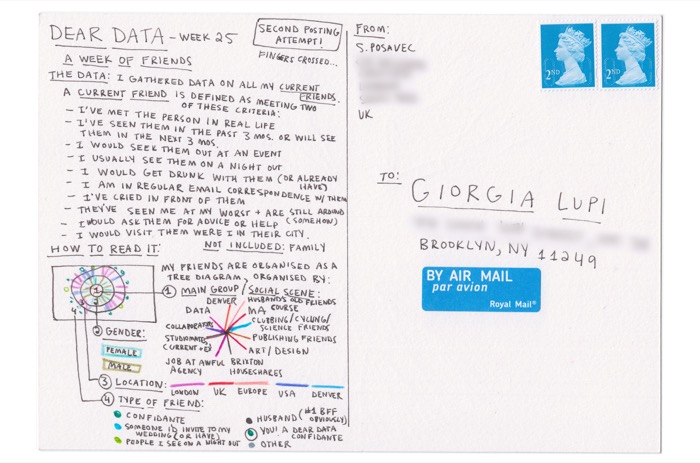 DEAR DATA - WEEK 25
SECOND POSTING
ATTEMPT!
FINGERS CROSSED...
A WEEK OF FRIENDS
THE DATA: I GATHERED DATA ON ALL MY CURRENT
FRIENDS.
A CURRENT FRIEND IS DEFINED AS MEETING TWO
OF THESE CRITERIA:
- I'VE MET THE PERSON IN REAL LIFE
- I'VE SEEN THEM IN THE PAST 3 MOS. OR WILL SEE
THEM IN THE NEXT 3 MOS.
- I WOULD SEEK THEM OUT AT AN EVENT
- I USUALLY SEE THEM ON A NIGHT OUT
- I WOULD GET DRUNK WITH THEM (OR ALREADY
HAVE)
- I AM IN REGULAR EMAIL CORRESPONDENCE W/ THEM
- I'VE CRIED IN FRONT OF THEM
- THEY'VE SEEN ME AT MY WORST + ARE STILL AROUND
(SOMEHOW)
- I WOULD ASK THEM FOR ADVICE OR HELP
- I WOULD VISIT THEM WERE I IN THEIR CITY.
NOT INCLUDED: FAMILY
HOW TO READ IT:
MY FRIENDS ARE ORGANISED AS A
TREE DIAGRAM, ORGANISED BY:
1 MAIN GROUP / SOCIAL SCENE:
DENVER
HUSBAND'S OLD FRIENDS
DATA
MA COURSE
CLUBBING/CYCLING/
SCIENCE FRIENDS
COLLABORATORS
STUDIOMATES
CURRENT + EX
PUBLISHING FRIENDS
ART/DESIGN
JOB AT AWFUL
AGENCY
BRIXTON
HOUSESHARES
1
2
3
4
2 GENDER:
FEMALE
MALE
3 LOCATION:
LONDON UK EUROPE USA DENVER
4 TYPE OF FRIEND:
CONFIDANTE
SOMEONE I'D INVITE TO MY
WEDDING (OR HAVE)
PEOPLE I SEE ON A NIGHT OUT
HUSBAND (#1 BFF
OBVIOUSLY)
YOU! A DEAR DATA
CONFIDANTE
OTHER
FROM:
S. POSAVEC
UK
2ND
2ND
TO:
GIORGIA LUPI
BROOKLYN, NY 11249
BY AIR MAIL
par avion
Royal Mail®